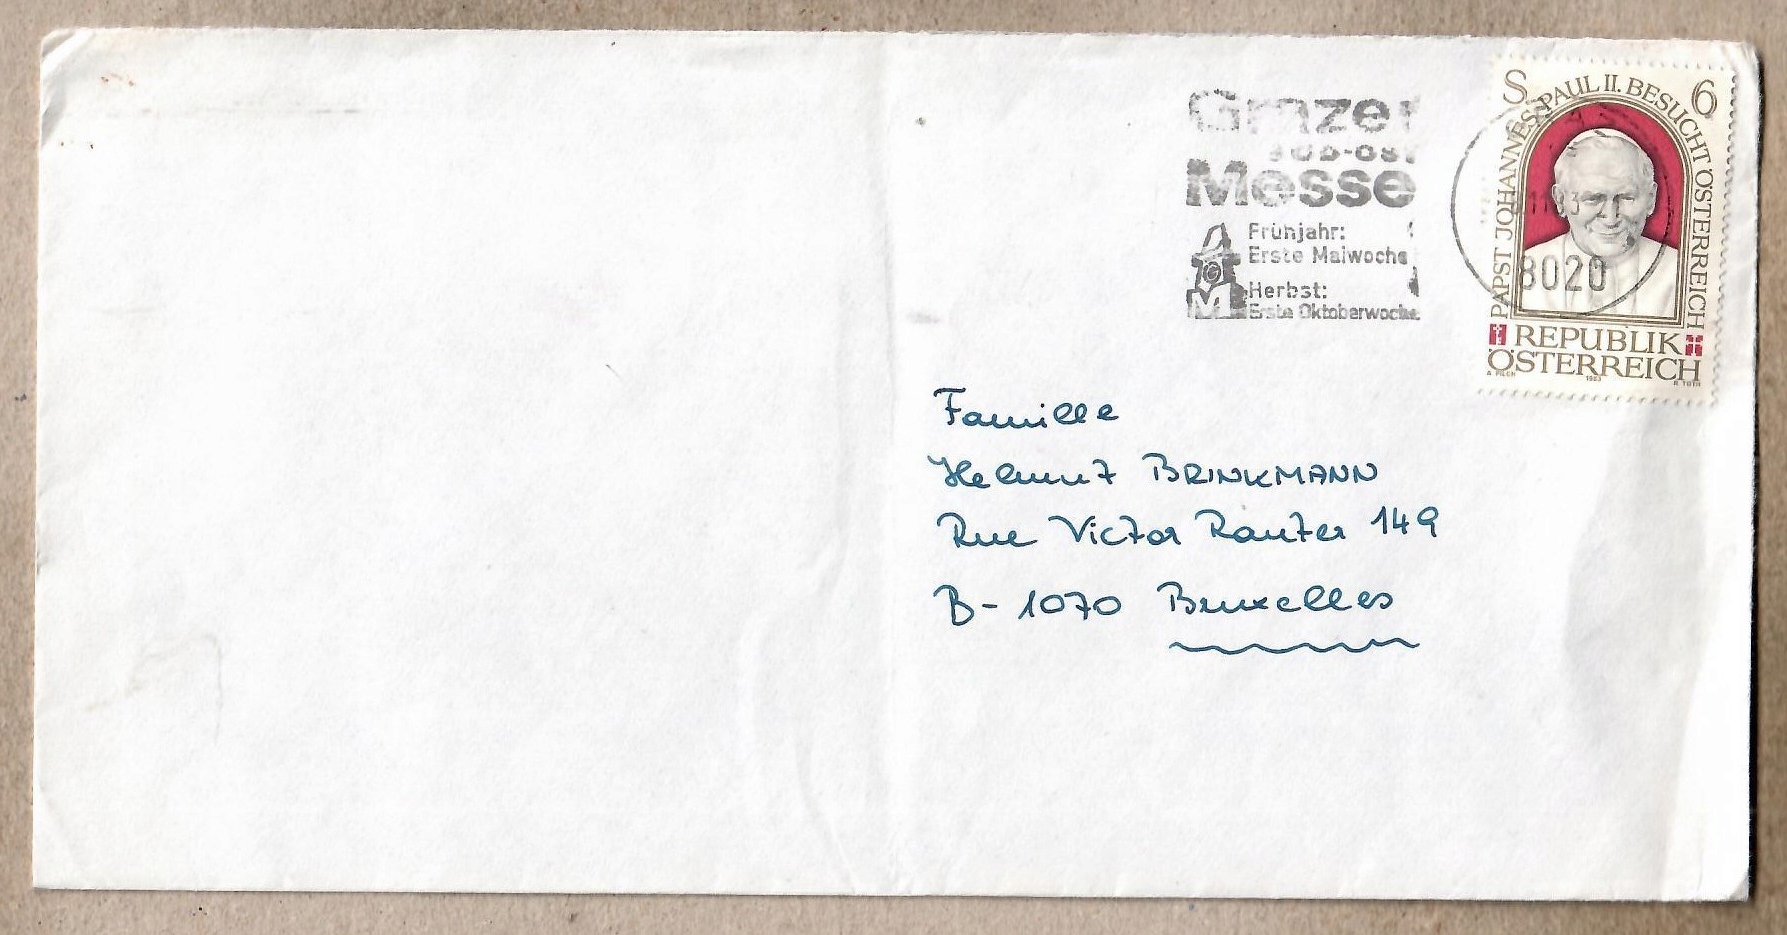 Grazer
SÜD-OST
Messe
Frühjahr:
Erste Maiwoche
Herbst:
Erste Oktoberwoche
M
8020
S 6
PAPST JOHANNES PAUL II. BESUCHT ÖSTERREICH
REPUBLIK
ÖSTERREICH
A. PILCH 1983 R. TOTH
Famille
Helmut BRINKMANN
Rue Victor Rauter 149
B-1070 Bruxelles